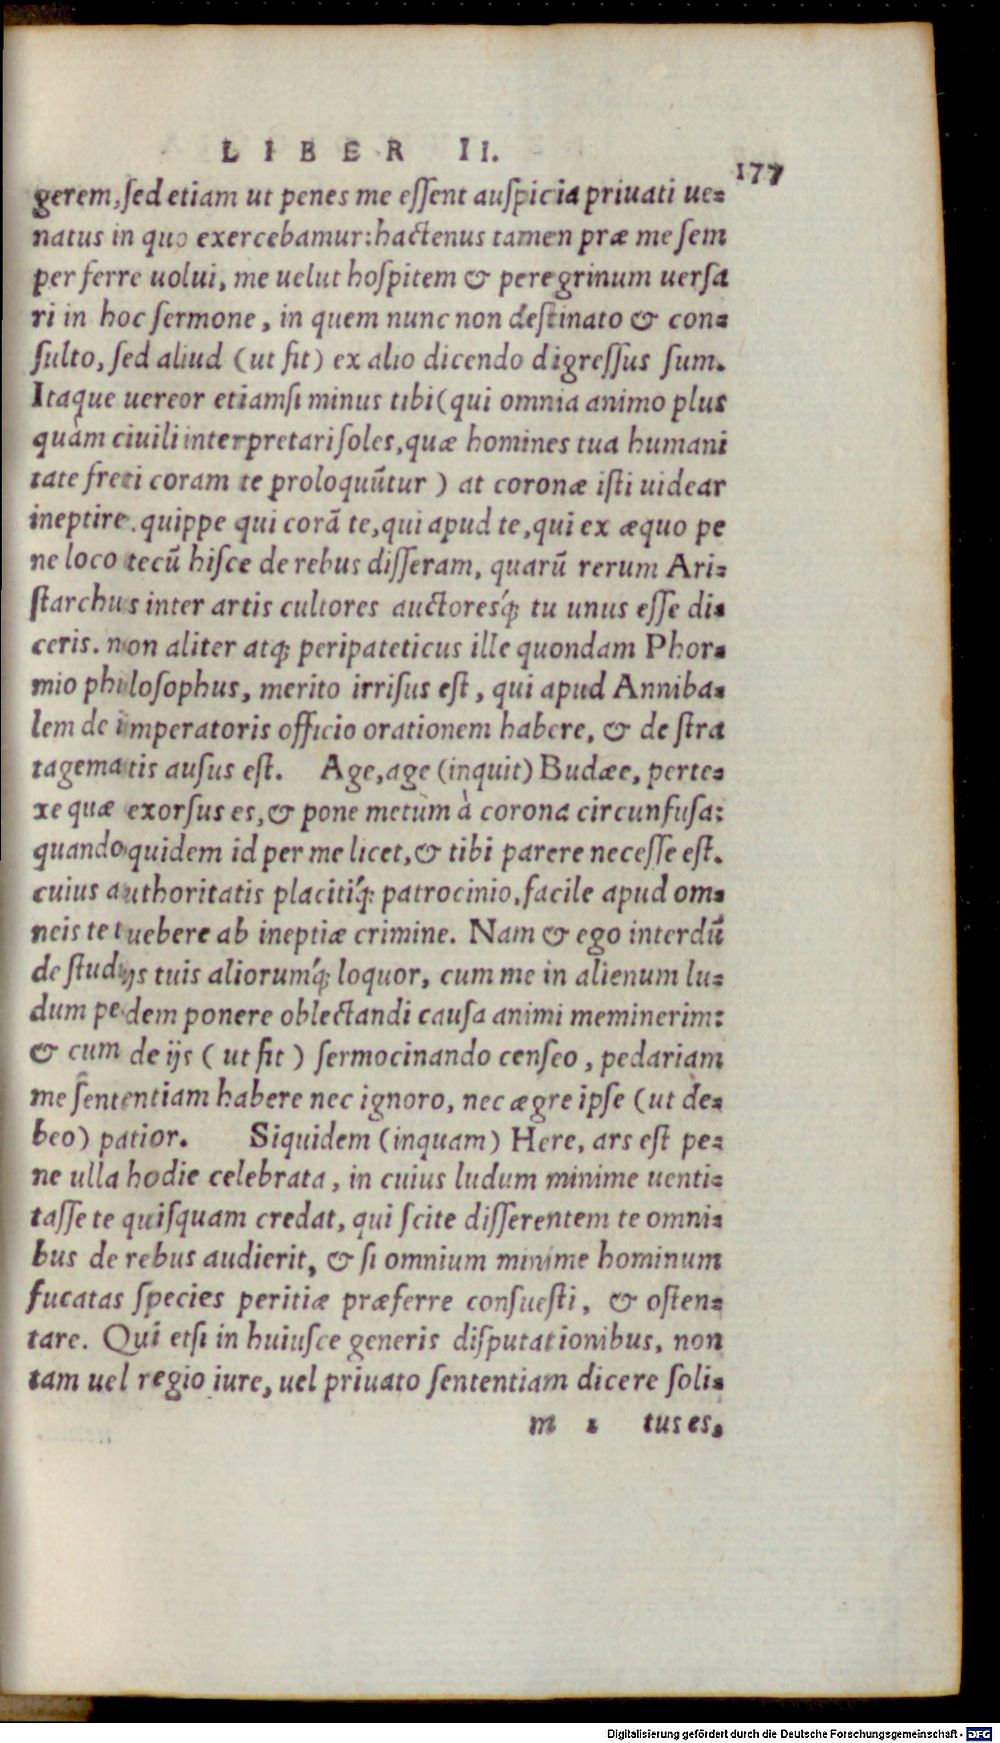 LIBER II.
177
gerem, ſed etiam ut penes me eſſent auſpicia priuati ue⸗
natus in quo exercebamur: hactenus tamen præ me ſem
per ferre uolui, me uelut hoſpitem & peregrinum uerſa
ri in hoc ſermone, in quem nunc non deſtinato & con⸗
ſulto, ſed aliud (ut fit) ex alio dicendo digreſſus ſum.
Itaque uereor etiamſi minus tibi (qui omnia animo plus
quàm ciuili interpretari ſoles, quæ homines tua humani
tate freti coram te proloquũtur) at coronæ iſti uidear
ineptire. quippe qui corã te, qui apud te, qui ex æquo pe
ne loco tecũ hiſce de rebus diſſeram, quarũ rerum Ari⸗
ſtarchus inter artis cultores auctoresq́; tu unus eſſe di⸗
ceris. non aliter atq; peripateticus ille quondam Phor⸗
mio philoſophus, merito irriſus eſt, qui apud Anniba⸗
lem de imperatoris officio orationem habere, & de ſtra
tagematis auſus eſt. Age, age (inquit) Budæe, perte⸗
xe quæ exorſus es, & pone metum à corona circunfuſa:
quandoquidem id per me licet, & tibi parere neceſſe eſt.
cuius authoritatis placitiq́; patrocinio, facile apud om⸗
neis te tuebere ab ineptiæ crimine. Nam & ego interdũ
de ſtudijs tuis aliorumq́; loquor, cum me in alienum lu⸗
dum pedem ponere oblectandi cauſa animi meminerim:
& cum de ijs (ut fit) ſermocinando cenſeo, pedariam
me ſententiam habere nec ignoro, nec ægre ipſe (ut de⸗
beo) patior. Siquidem (inquam) Here, ars eſt pe⸗
ne ulla hodie celebrata, in cuius ludum minime uenti⸗
taſſe te quiſquam credat, qui ſcite diſſerentem te omni⸗
bus de rebus audierit, & ſi omnium minime hominum
fucatas ſpecies peritiæ præferre conſueſti, & oſten⸗
tare. Qui etſi in huiuſce generis diſputationibus, non
tam uel regio iure, uel priuato ſententiam dicere ſoli⸗
m 1 tus es,
Digitalisierung gefördert durch die Deutsche Forschungsgemeinschaft - DFG